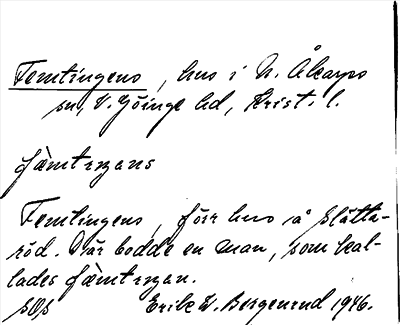 Femtingens, hus i N. Åkarps
sn, V. Göinge hd, Krist. l.
fämtingans
Femtingens, förr hus å Slätta-
röd. Där bodde en man, som kal-
lades fämtingan.
1946.